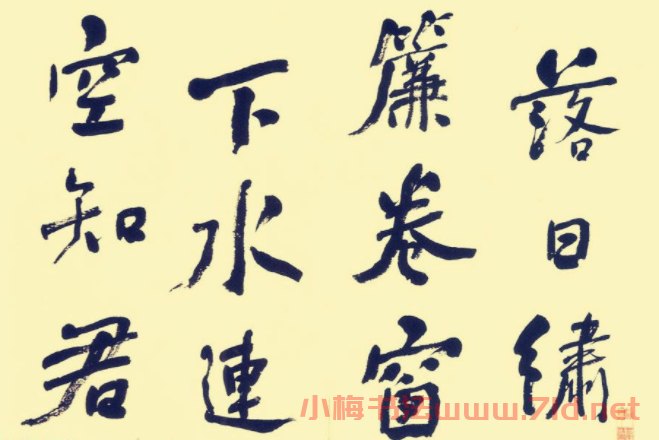 落日繡
簾卷窗
下水連
空知君
小梅书 www.7ld.net